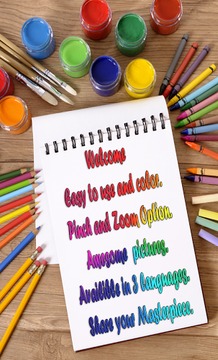 Welcome
Easy to use and color.
Pinch and Zoom Option.
Awesome pictures.
Availible in 3 Languages.
Share your Masterpiece.